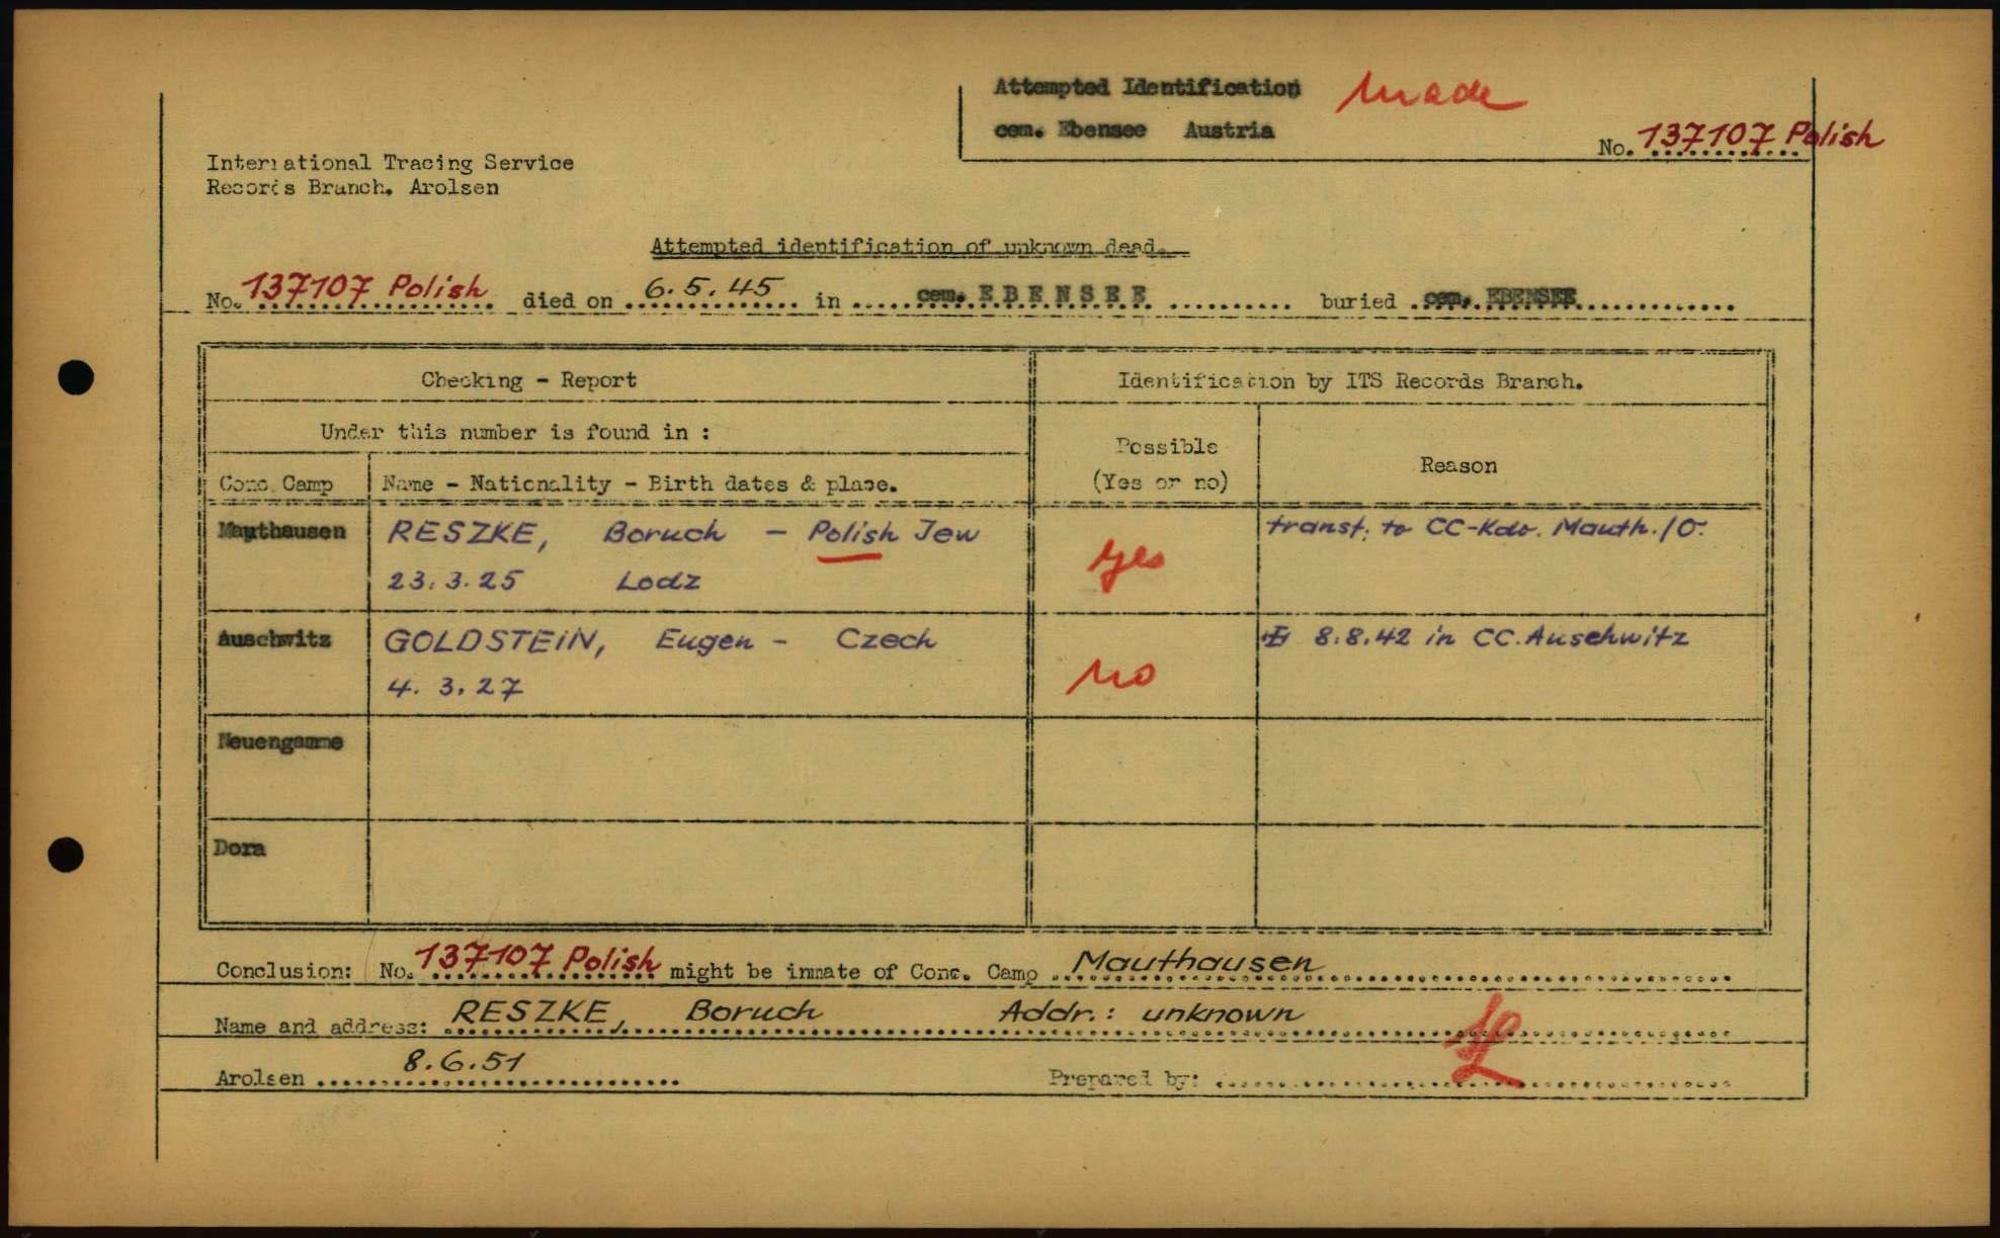 Attempted Identification made
cem. Ebensee Austria
No. 137107 Polish
International Tracing Service
Records Branch. Arolsen
Attempted identification of unknown dead.
No. 137107 Polish died on 6.5.45 in cem. EBENSEE buried cem. EBENSEE
Checking - Report
Identification by ITS Records Branch.
Under this number is found in :
Possible
(Yes or no)
Reason
Conc. Camp
Name - Nationality - Birth dates & place.
Mauthausen
RESZKE, Boruch - Polish Jew
23.3.25 Lodz
yes
transf. to CC-Kdo. Mauth./O.
Auschwitz
GOLDSTEIN, Eugen - Czech
4.3.27
no
8.8.42 in CC. Auschwitz
Neuengamme
Dora
Conclusion: No. 137107 Polish might be inmate of Conc. Camp Mauthausen
Name and address: RESZKE, Boruch Addr.: unknown
Arolsen 8.6.51
Prepared by: